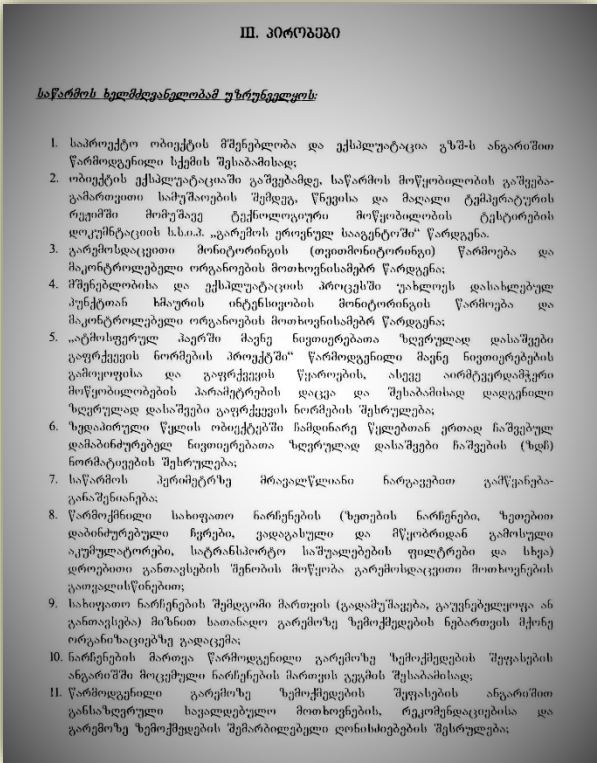 III. პირობები
საწარმოს ხელმძღვანელობამ უზრუნველყოს:
1. საპროექტო ობიექტის მშენებლობა და ექსპლუატაცია გზშ-ს ანგარიშით
წარმოდგენილი სქემის შესაბამისად;
2. ობიექტის ექსპლუატაციაში გაშვებამდე, საწარმოს მოწყობილობის გაშვება-
გამართვითი სამუშაოების შემდეგ, წნევისა და მაღალი ტემპერატურის
რეჟიმში მომუშავე ტექნოლოგიური მოწყობილობის ტესტირების
დოკუმნტაციის ს.ს.ი.პ. „გარემოს ეროვნულ სააგენტოში“ წარდგენა.
3. გარემოსდაცვითი მონიტორინგის (თვითმონიტორინგი) წარმოება და
მაკონტროლებელი ორგანოების მოთხოვნისამებრ წარდგენა;
4. მშენებლობისა და ექსპლუატაციის პროცესში უახლოეს დასახლებულ
პუნქტთან ხმაურის ინტენსივობის მონიტორინგის წარმოება და
მაკონტროლებელი ორგანოების მოთხოვნისამებრ წარდგენა;
5. „ატმოსფერულ ჰაერში მავნე ნივთიერებათა ზღვრულად დასაშვები
გაფრქვევის ნორმების პროექტში“ წარმოდგენილი მავნე ნივთიერებების
გამოყოფისა და გაფრქვევის წყაროების, ასევე აირმტვერდამჭერი
მოწყობილობების პარამეტრების დაცვა და შესაბამისად დადგენილი
ზღვრულად დასაშვები გაფრქვევის ნორმების შესრულება;
6. ზედაპირული წყლის ობიექტებში ჩამდინარე წყლებთან ერთად ჩაშვებულ
დამაბინძურებელ ნივთიერებათა ზღვრულად დასაშვები ჩაშვების (ზდჩ)
ნორმატივების შესრულება;
7. საწარმოს პერიმეტრზე მრავალწლიანი ნარგავებით გამწვანება-
განაშენიანება;
8. წარმოქმნილი სახიფათო ნარჩენების (ზეთების ნარჩენები, ზეთებით
დაბინძურებული ჩვრები, ვადაგასული და მწყობრიდან გამოსული
აკუმულატორები, სატრანსპორტო საშუალებების ფილტრები და სხვა)
დროებითი განთავსების შენობის მოწყობა გარემოსდაცვითი მოთხოვნების
გათვალისწინებით;
9. სახიფათო ნარჩენების შემდგომი მართვის (გადამუშავება, გაუვნებელყოფა ან
განთავსება) მიზნით სათანადო გარემოზე ზემოქმედების ნებართვის მქონე
ორგანიზაციებზე გადაცემა;
10. ნარჩენების მართვა წარმოდგენილი გარემოზე ზემოქმედების შეფასების
ანგარიშში მოცემული ნარჩენების მართვის გეგმის შესაბამისად;
11. წარმოდგენილი გარემოზე ზემოქმედების შეფასების ანგარიშით
განსაზღვრული სავალდებულო მოთხოვნების, რეკომენდაციებისა და
გარემოზე ზემოქმედების შემარბილებელი ღონისძიებების შესრულება;